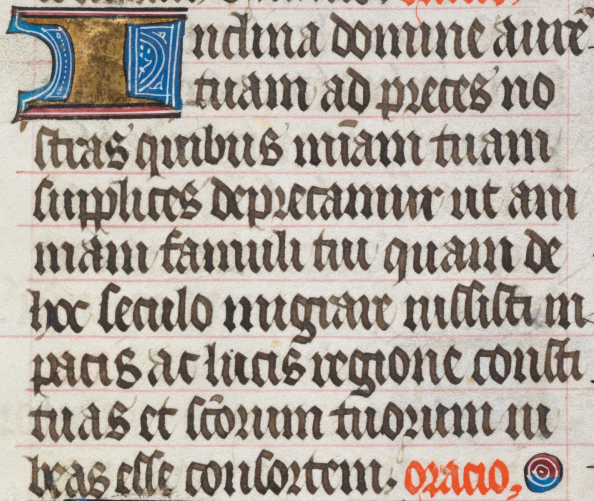 Inclina domine aurē
tuam ad preces no
stras quibus mīam tuam
supplices deprecamur ut ani
mam famuli tui quam de
hoc seculo migrare iussisti in
pacis ac lucis regione consti
tuas et sc̄orum tuorum iu
beas esse consortem. oracio,